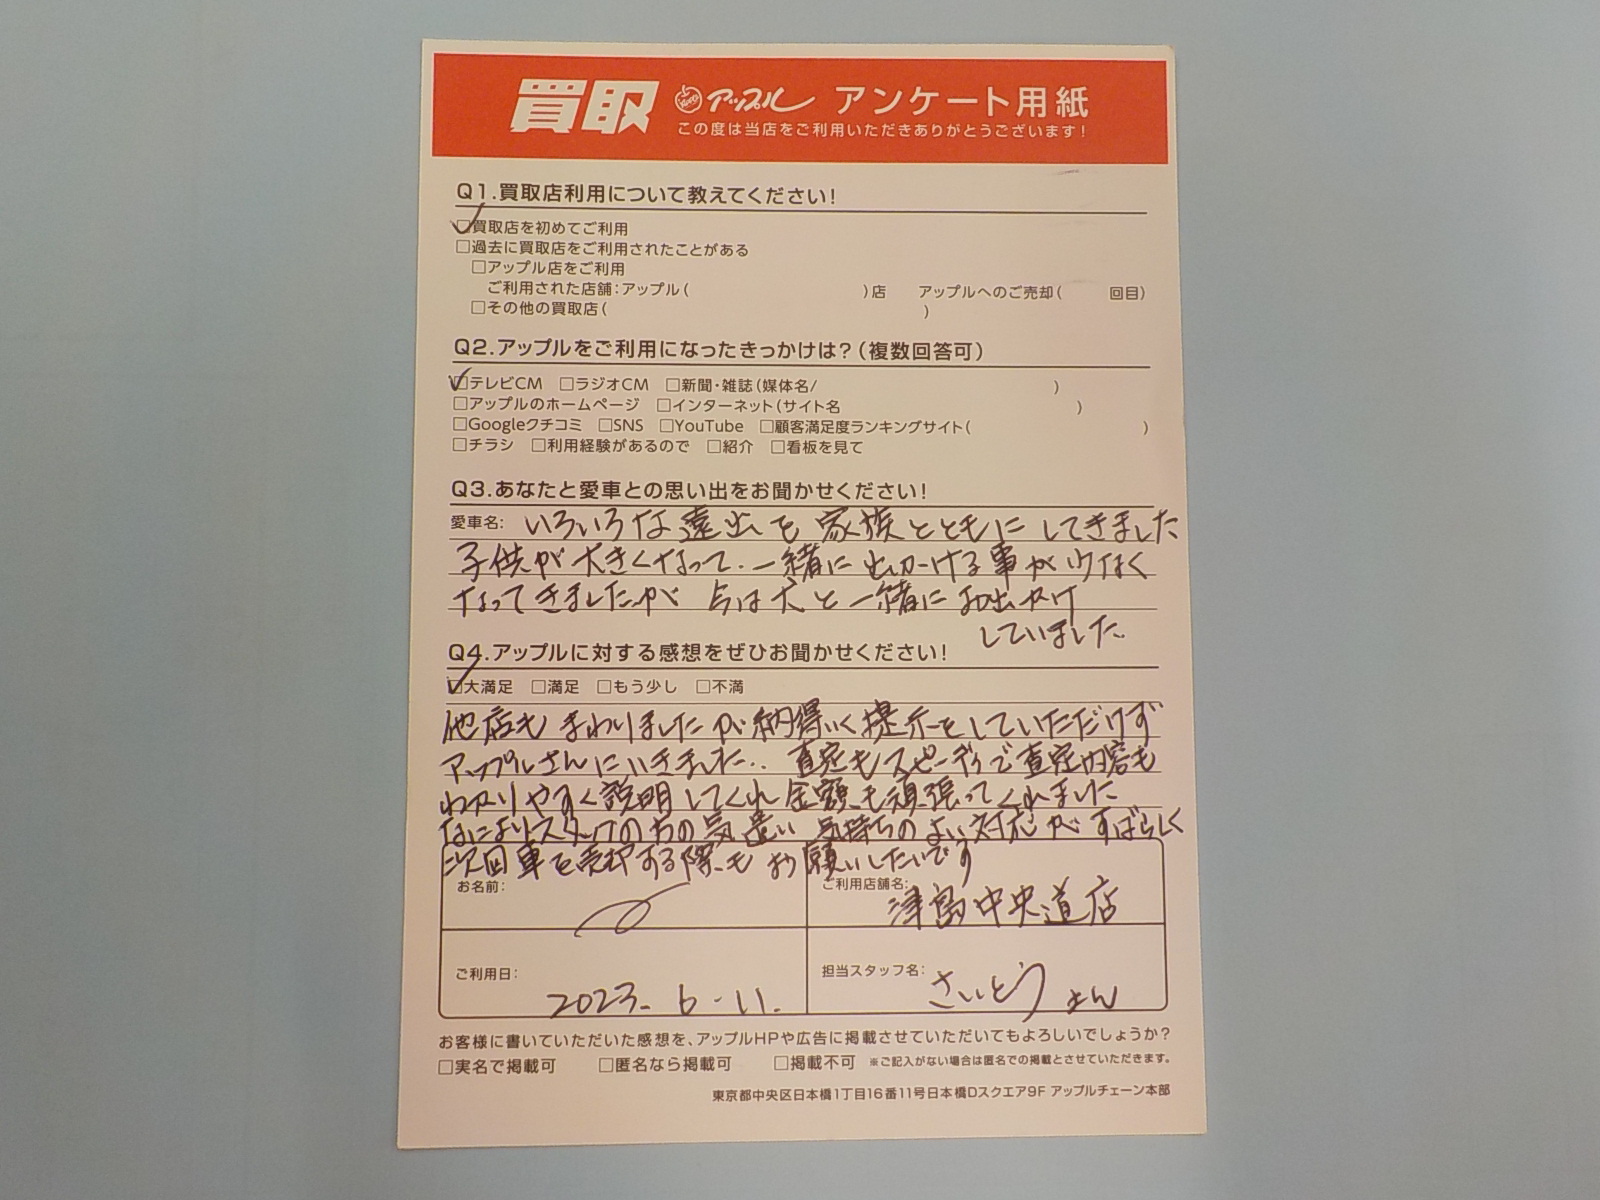 買取 アップル アンケート用紙
この度は当店をご利用いただきありがとうございます!
Q1.買取店利用について教えてください!
☑買取店を初めてご利用
□過去に買取店をご利用されたことがある
□アップル店をご利用
ご利用された店舗:アップル( )店 アップルへのご売却( 回目)
□その他の買取店( )
Q2.アップルをご利用になったきっかけは?(複数回答可)
☑テレビCM □ラジオCM □新聞・雑誌(媒体名/ )
□アップルのホームページ □インターネット(サイト名 )
□Googleクチコミ □SNS □YouTube □顧客満足度ランキングサイト( )
□チラシ □利用経験があるので □紹介 □看板を見て
Q3.あなたと愛車との思い出をお聞かせください!
愛車名: いろいろな遠出を家族とともにしてきました
子供が大きくなって.一緒に出かける事が少なく
なってきましたが 今は犬と一緒にお出かけ
していました.
Q4.アップルに対する感想をぜひお聞かせください!
☑大満足 □満足 □もう少し □不満
他店もまわりましたが納得いく提示をしていただけず
アップルさんにいきました.. 査定もスピーディで査定内容も
わかりやすく説明してくれ金額も頑張ってくれました
なによりスタッフの方の気遣い 気持ちのよい対応がすばらしく
次回車を売却する際もお願いしたいです
お名前: ご利用店舗名: 津島中央道店
ご利用日: 2023.6.11. 担当スタッフ名: さいとうさん
お客様に書いていただいた感想を、アップルHPや広告に掲載させていただいてもよろしいでしょうか?
□実名で掲載可 □匿名なら掲載可 □掲載不可 ※ご記入がない場合は匿名での掲載とさせていただきます。
東京都中央区日本橋1丁目16番11号日本橋Dスクエア9F アップルチェーン本部